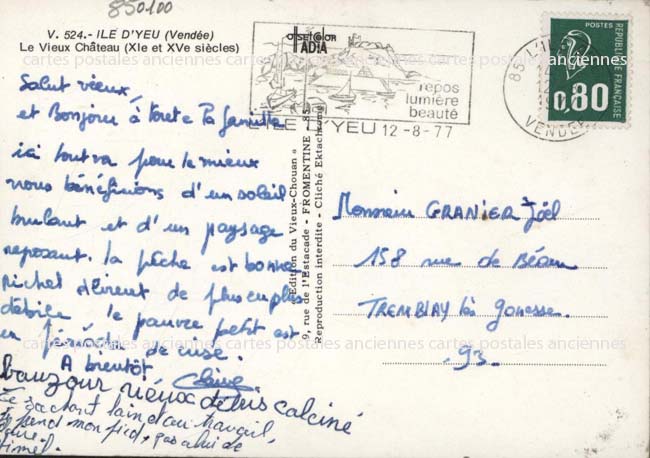 850100
V. 524.- ILE D'YEU (Vendée)
Le Vieux Château (XIe et XVe siècles)
Salut vieux,
et Bonjour à toute ta famille
ici tout va pour le mieux
nous bénéficions d'un soleil
brulant et d'un paysage
reposant. la pêche est bonne
Michel devient de plus en plus
débile le pauvre petit est
en période de crise.
A bientôt
bauzour vieux
calciné
mon pied, pas
"Edition du Vieux-Chouan"
9, rue de l'Estacade - FROMENTINE - 85
Reproduction interdite - Cliché Ektachrome
repos
lumière
beauté
L'ILE D'YEU 12-8-77
85 L'ILE
VENDEE
POSTES
REPUBLIQUE FRANÇAISE
0,80
Monsieur GRANIER Joël
158 rue de Béarn
TREMBLAY lès gonesse.
93.
cartes postales anciennes cartes postales anciennes cartes postales anciennes
cartes postales anciennes cartes postales anciennes cartes postales anciennes